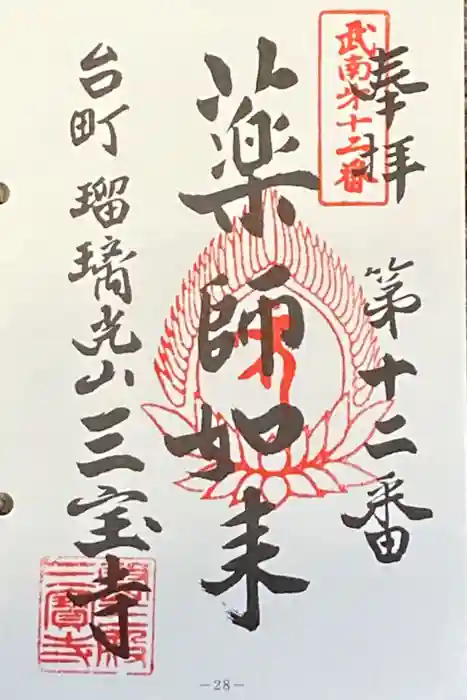 武南第十二番
奉拝
第十二番
薬師如来
台町 瑠璃光山 三宝寺
-28-